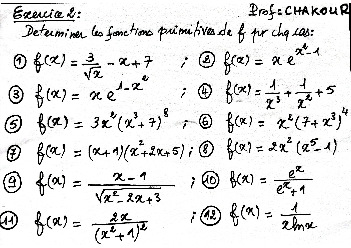 Exercice 2: Prof: CHAKOUR
Déterminer les fonctions primitives de f pr chq cas:
① f(x) = 3/√x - x + 7 ; ② f(x) = x e^(x²-1)
③ f(x) = x e^(1-x²) ; ④ f(x) = 1/x³ + 1/x² + 5
⑤ f(x) = 3x²(x³+7)⁸ ; ⑥ f(x) = x²(7+x³)⁴
⑦ f(x) = (x+1)(x²+2x+5) ; ⑧ f(x) = 2x²(x⁵-1)
⑨ f(x) = (x-1)/√(x²-2x+3) ; ⑩ f(x) = e^x/(e^x+1)
⑪ f(x) = 2x/(x²+1)² ; ⑫ f(x) = 1/(x ln x)